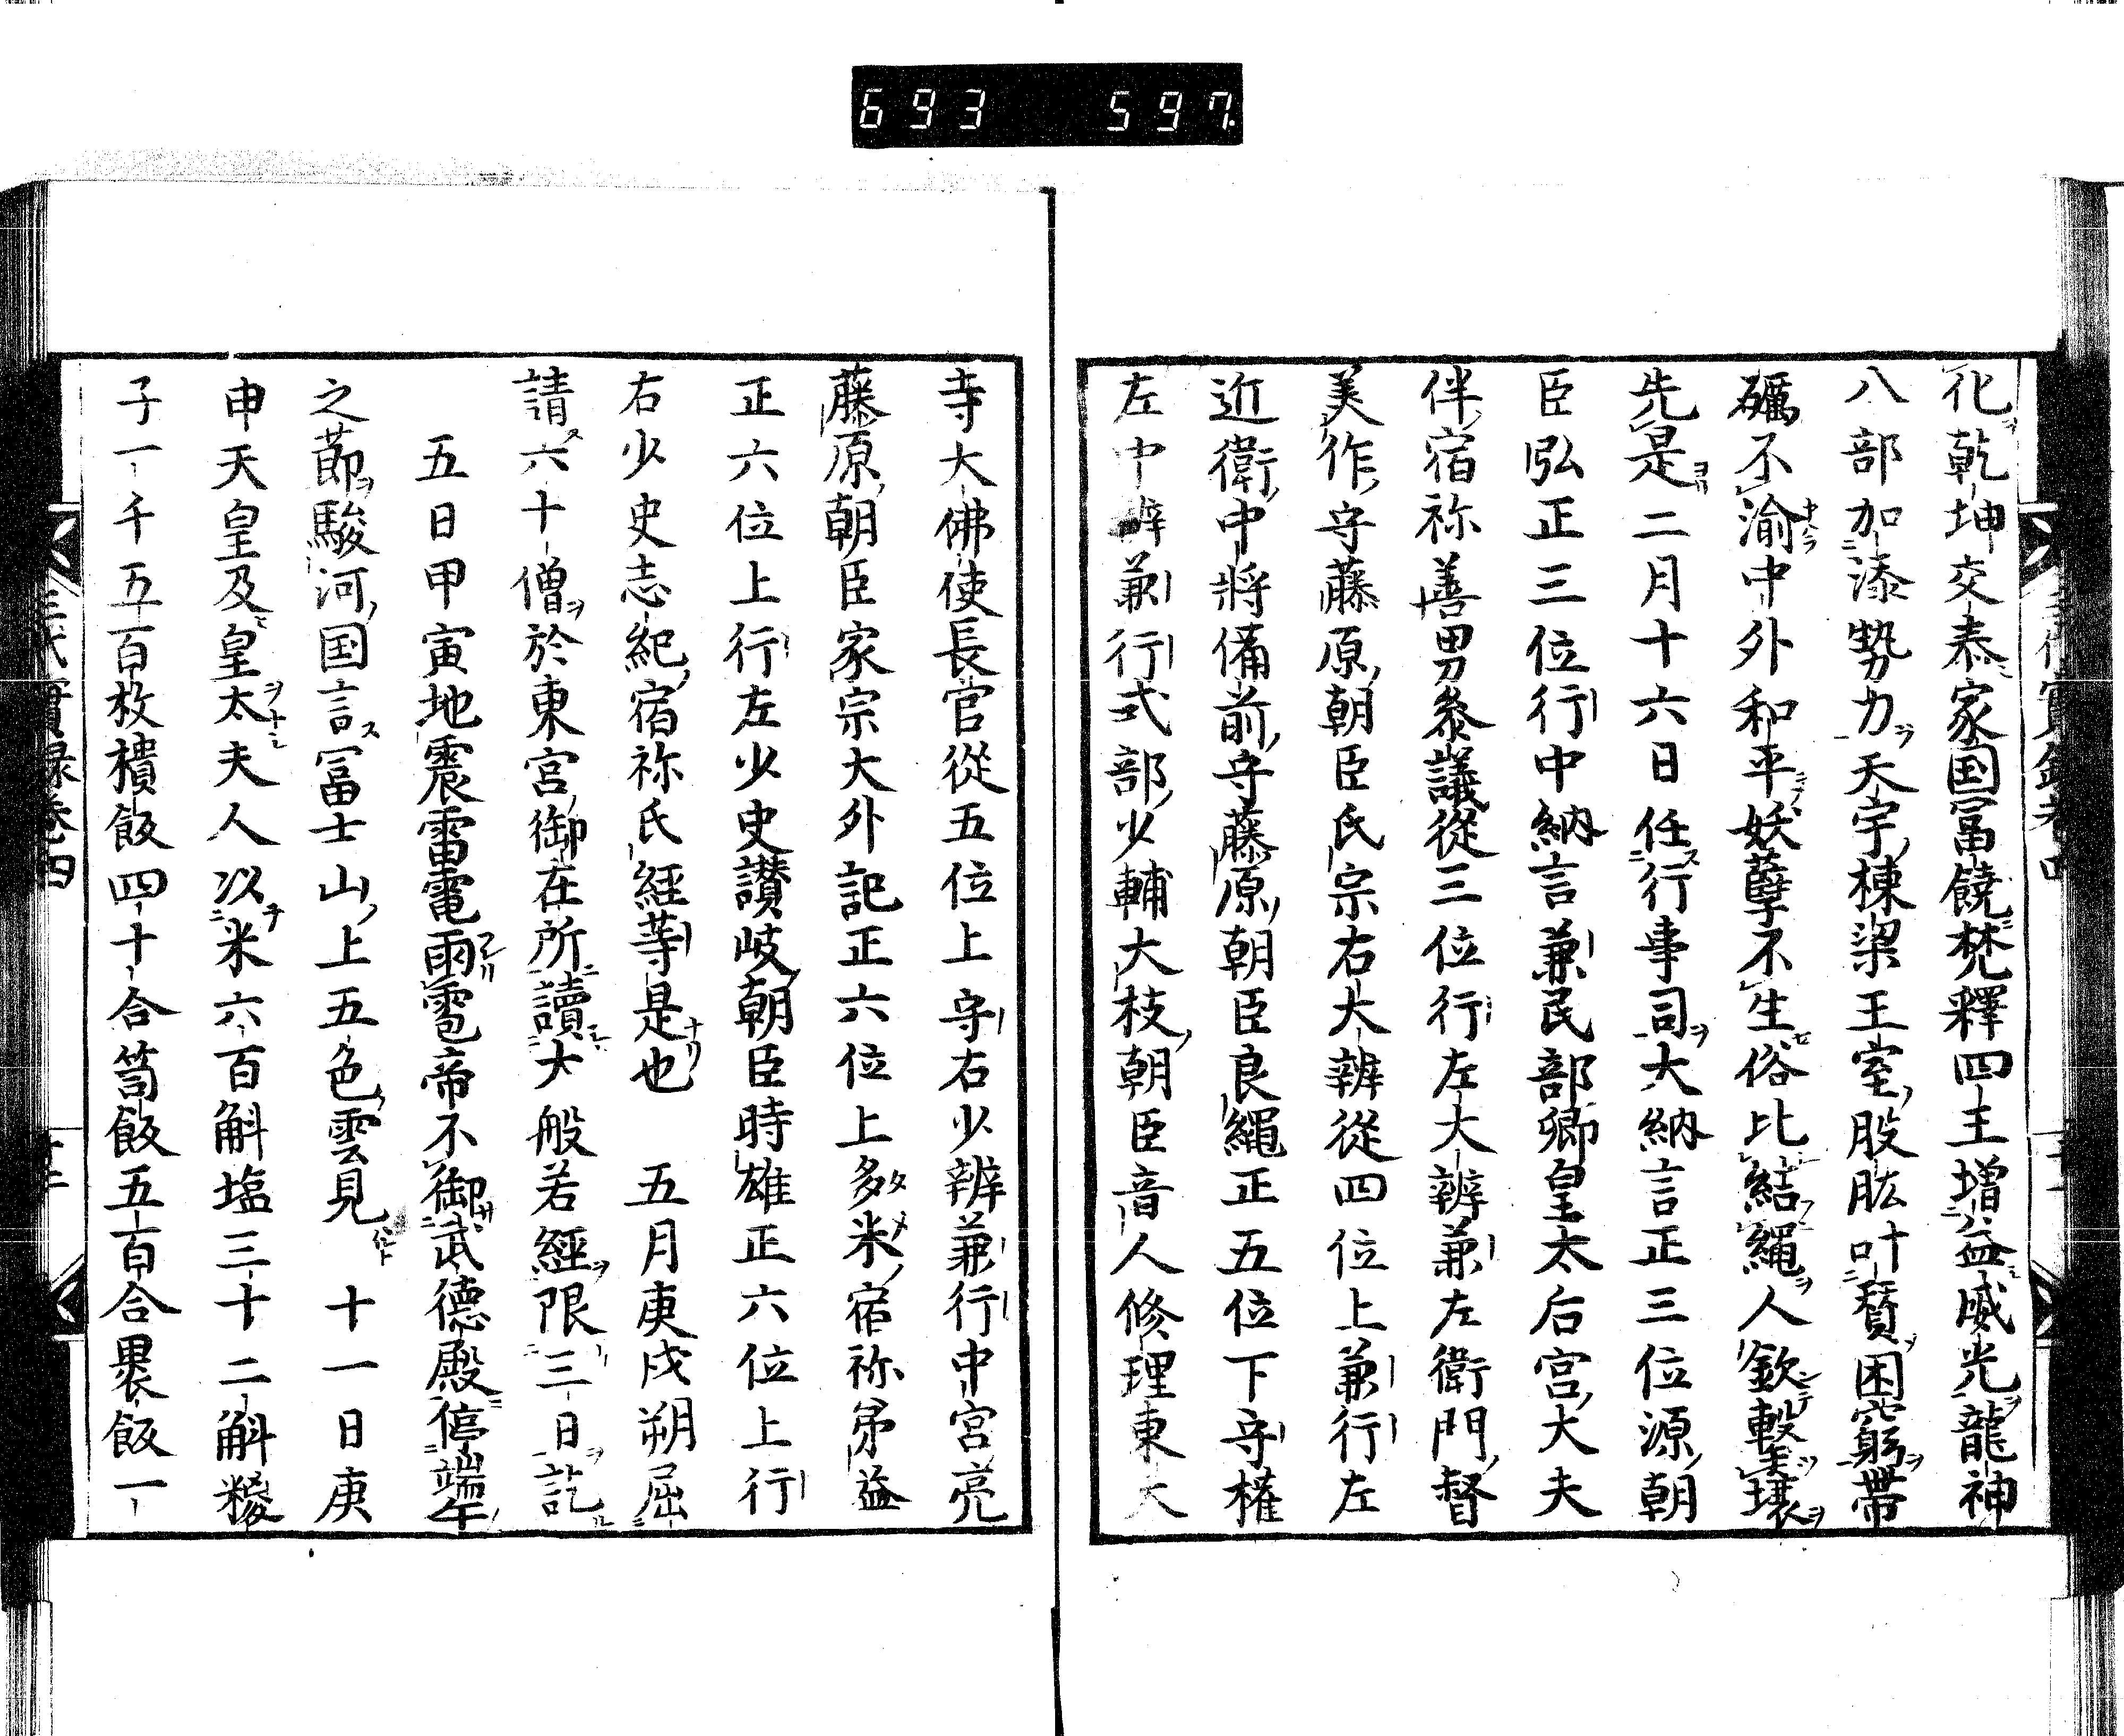 693 597
化乾坤交泰家国冨饒梵釋四王増益威光龍神
八部加添勢力天宇棟梁王室股肱叶賛困窮帯
礪不渝中外和平妖孽不生俗比結縄人欽轂壤
先是二月十六日任行事司大納言正三位源朝
臣弘正三位行中納言兼民部卿皇太后宮大夫
伴宿祢善男参議從三位行左大辨兼左衛門督
美作守藤原朝臣氏宗右大辨從四位上兼行左
近衛中將備前守藤原朝臣良縄正五位下守權
左中辨兼行式部少輔大枝朝臣音人修理東大
寺大佛使長官從五位上守右少辨兼行中宮亮
藤原朝臣家宗大外記正六位上多米宿祢弟益
正六位上行左少史讃岐朝臣時雄正六位上行
右少史志紀宿祢氏經等是也 五月庚戌朔屈
請六十僧於東宮御在所讀大般若經限三日訖
五日甲寅地震雷電雨雹帝不御武德殿停端午
之莭駿河国言冨士山上五色雲見 十一日庚
申天皇及皇太夫人以米六百斛塩三十二斛糉
子一千五百枚櫃飯四十合笥飯五百合裹飯一
三代實録卷四